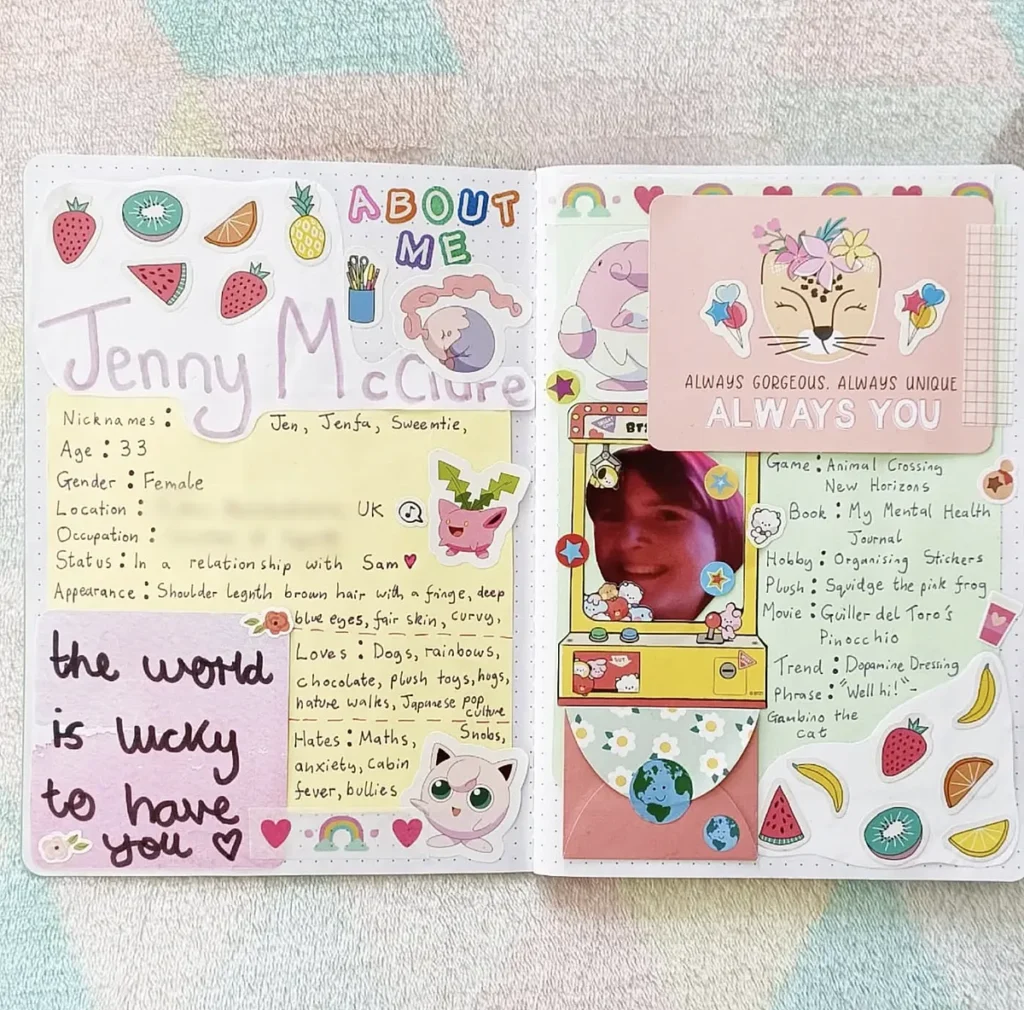 ABOUT
ME
Jenny McClure
Nicknames : Jen, Jenfa, Sweemtie,
Age : 33
Gender : Female
Location : UK
Occupation :
Status : In a relationship with Sam
Appearance : Shoulder legnth brown hair with a fringe, deep
blue eyes, fair skin, curvy,
Loves : Dogs, rainbows,
chocolate, plush toys, hugs,
nature walks, Japanese pop
culture
Hates : Maths, Snobs,
anxiety, Cabin
fever, bullies
the world
is lucky
to have
you
ALWAYS GORGEOUS. ALWAYS UNIQUE
ALWAYS YOU
Game : Animal Crossing
New Horizons
Book : My Mental Health
Journal
Hobby : Organising Stickers
Plush : Squidge the pink frog
Movie : Guiller del Toro's
Pinocchio
Trend : Dopamine Dressing
Phrase : "Well hi!" -
Gambino the
cat